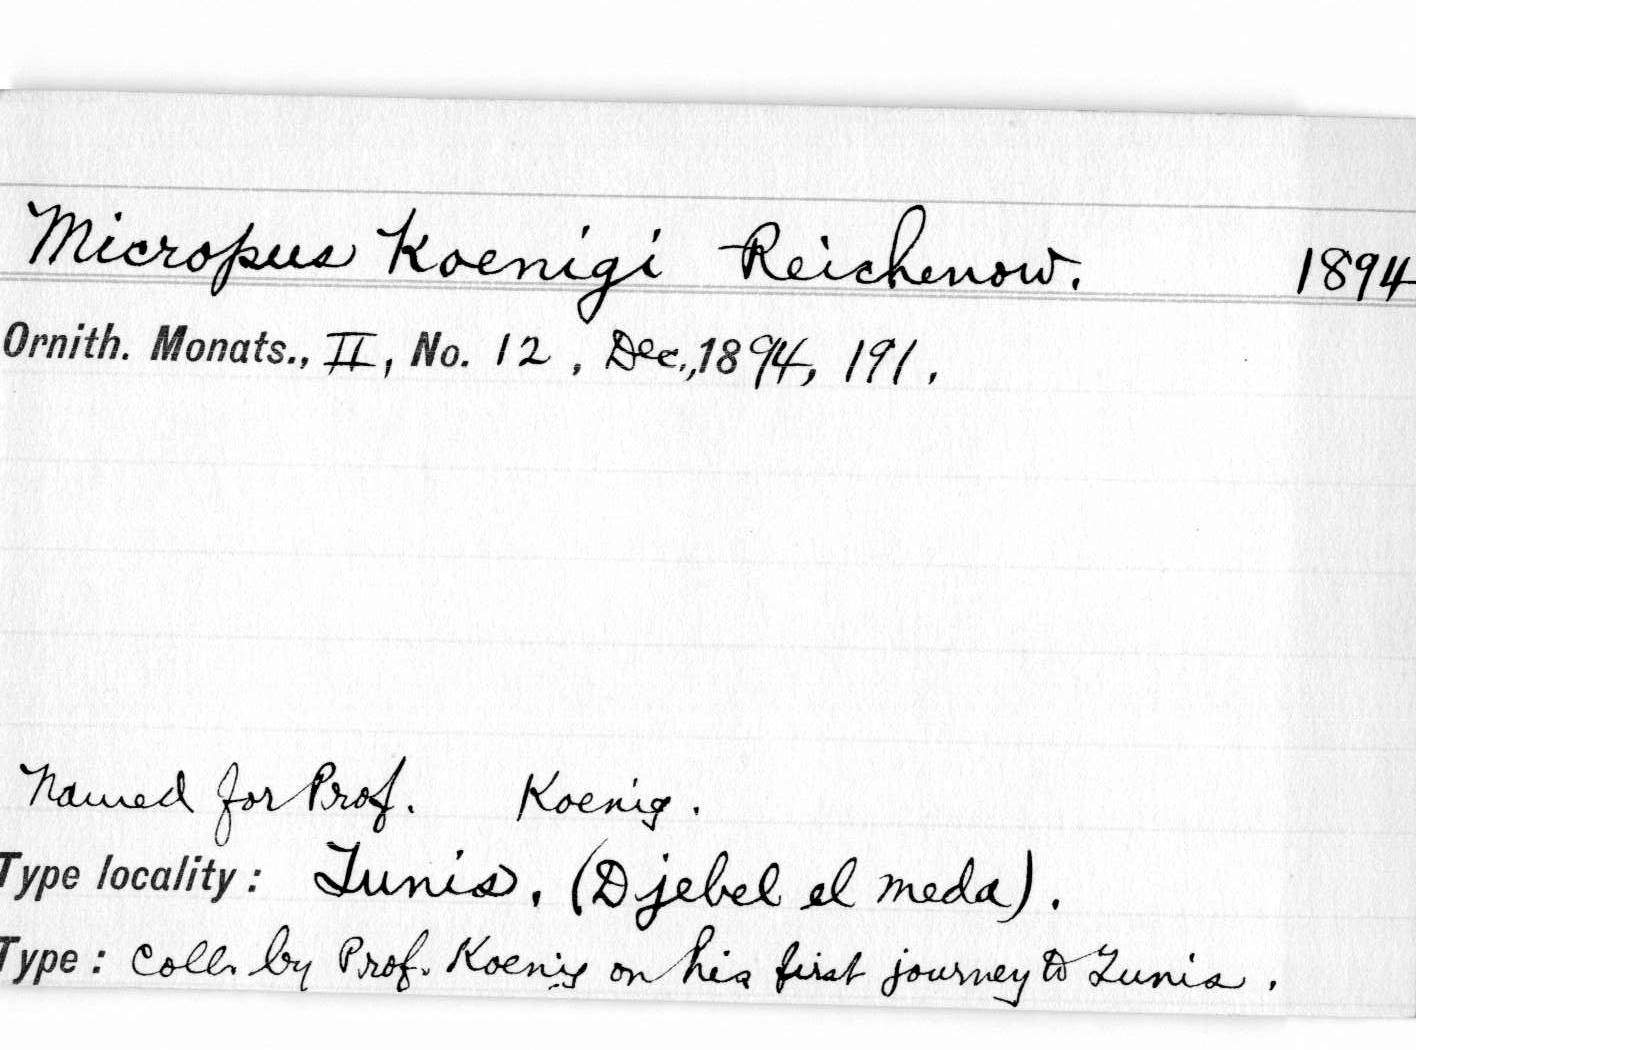 Micropus Koenigi Reichenow. 1894
Ornith. Monats., II, No. 12, Dec., 1894, 191.
Named for Prof. Koenig.
Type locality: Tunis. (Djebel el meda).
Type: Coll. by Prof. Koenig on his first journey to Tunis.